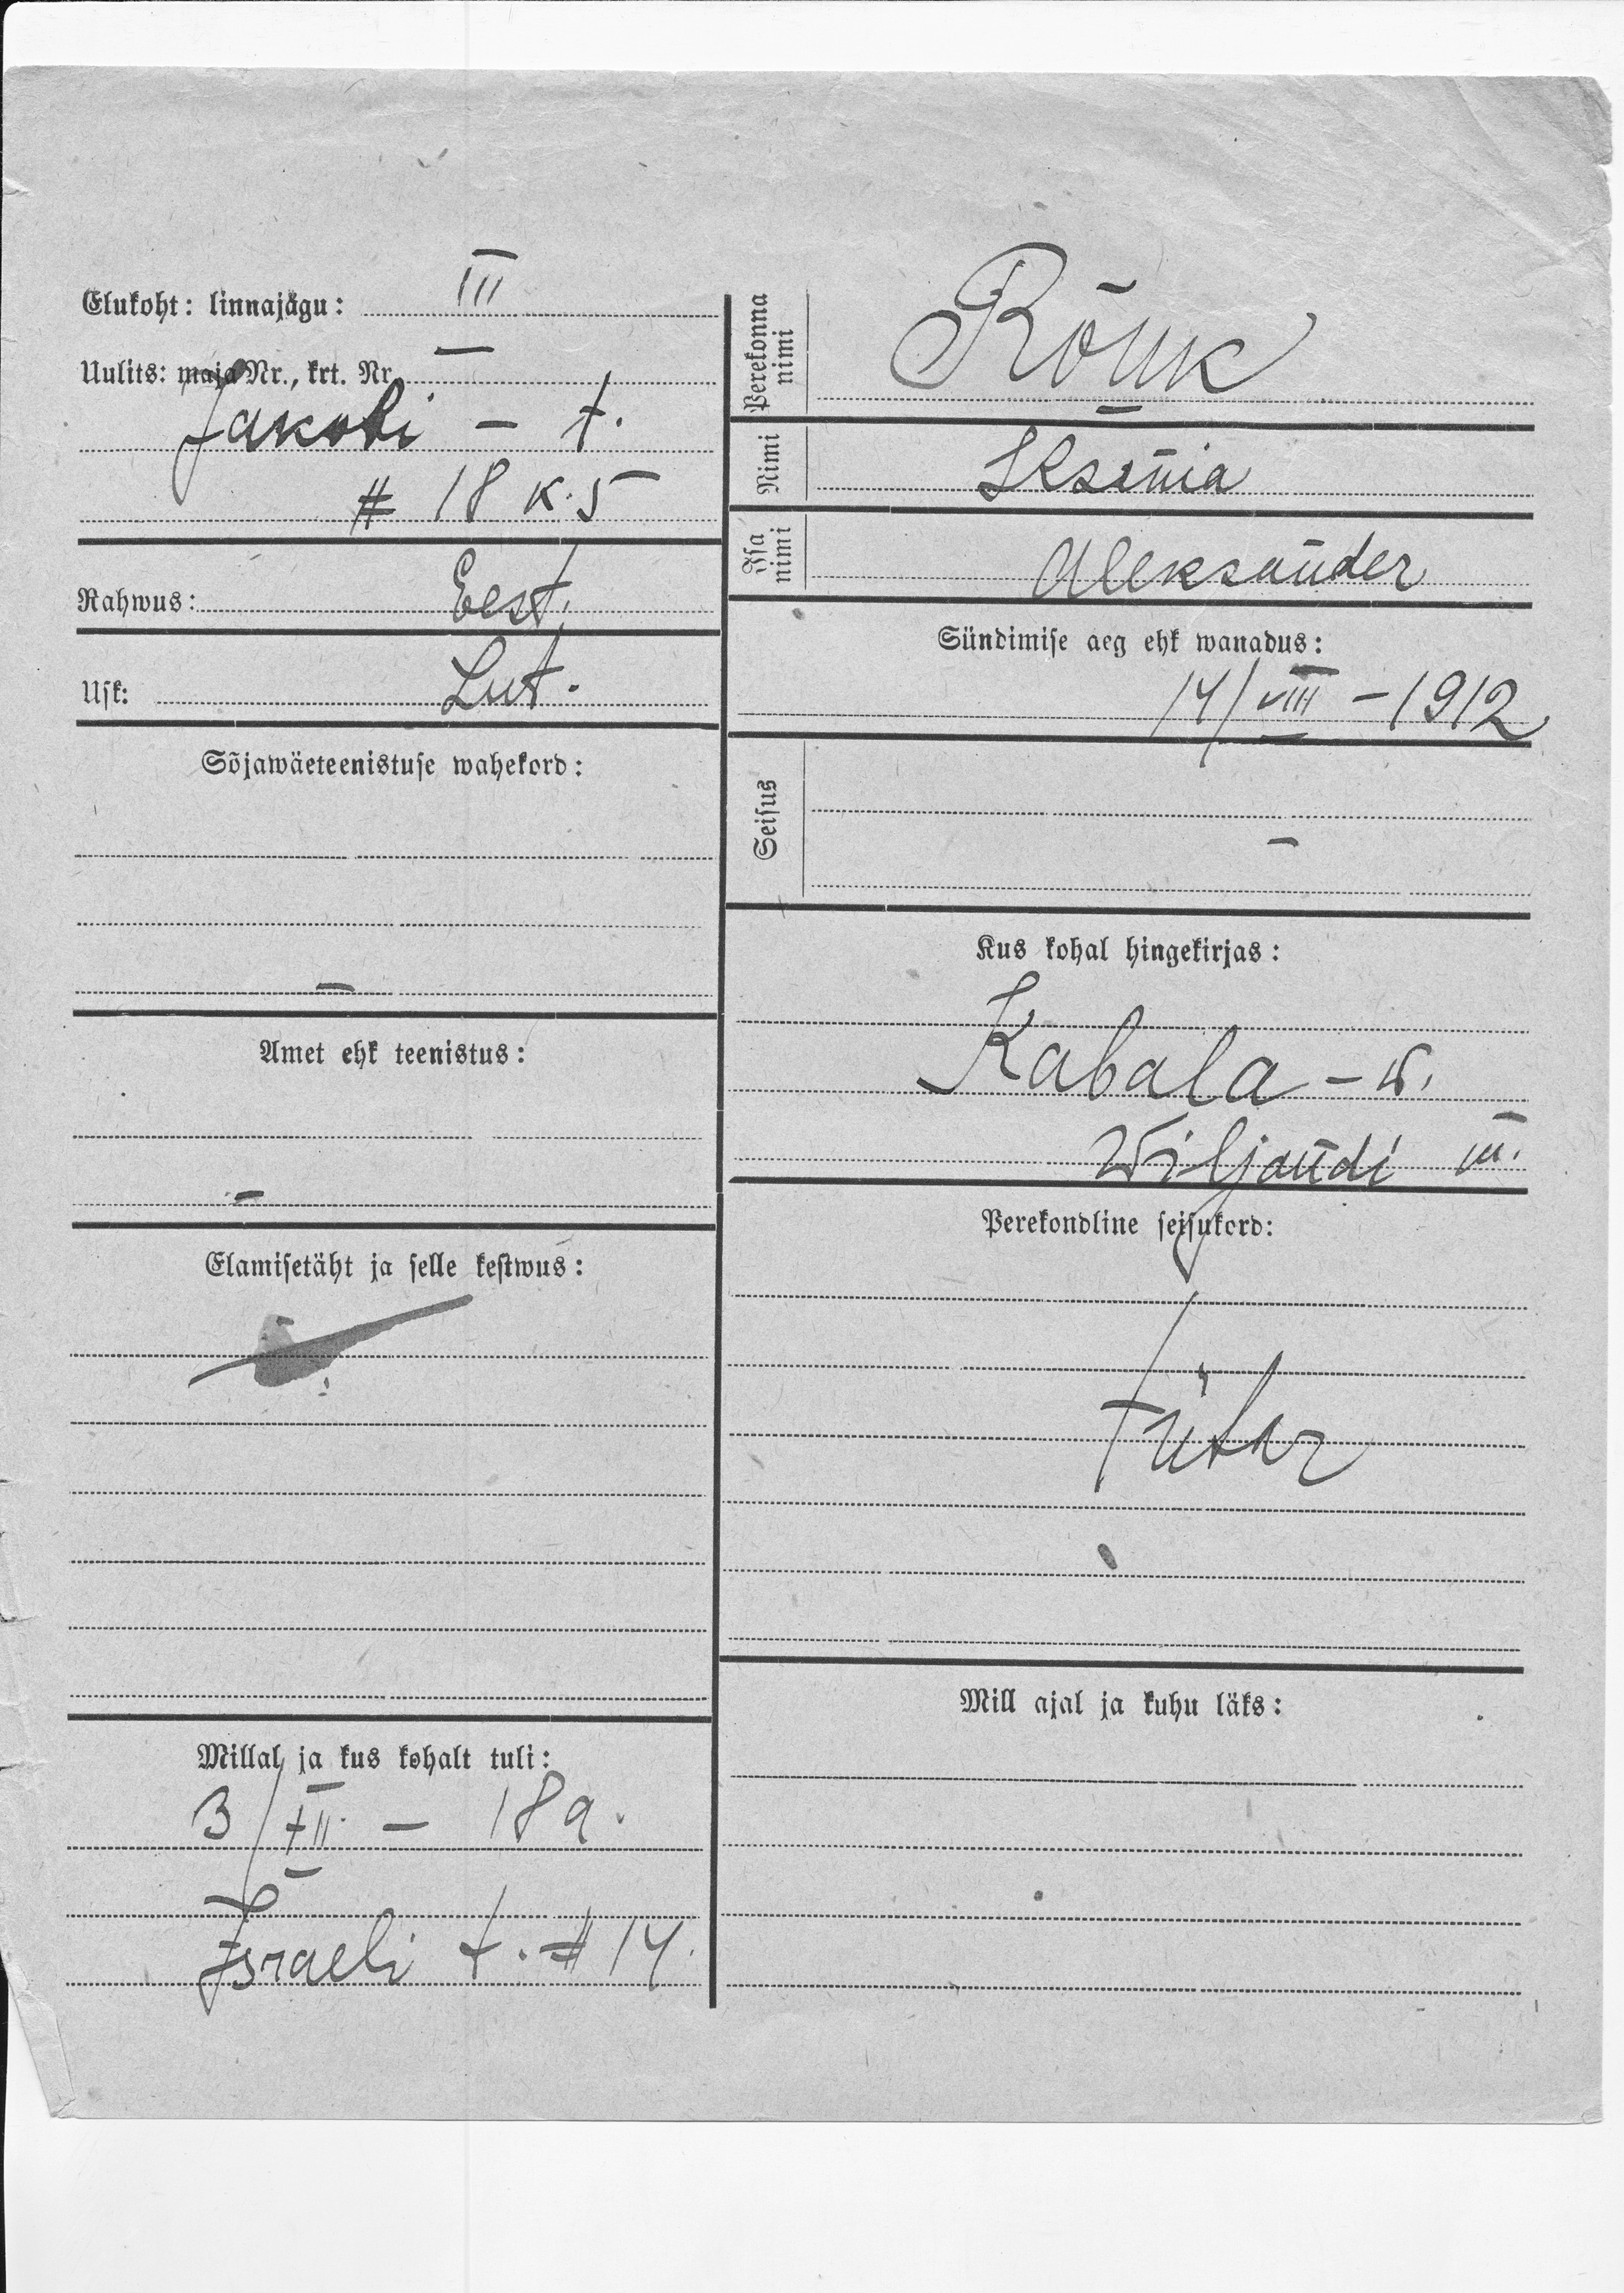 Elukoht: linnajagu: III
Uulits: maja Nr., krt. Nr.
Jakobi - t.
# 18 K. 5
Rahwus: Eest.
Usk: Lut.
Sõjawäeteenistuse wahekord:
-
Amet ehk teenistus:
-
Elamisetäht ja selle kestwus:
Millal ja kus kohalt tuli:
3/XII. - 18 a.
Israeli t. # 14.
Perekonna nimi
Rõuk
Nimi
Ksenia
Isa nimi
Aleksander
Sündimise aeg ehk wanadus:
14/VIII - 1912
Seisus
-
Kus kohal hingekirjas:
Kabala - w.
Wiljandi m.
Perekondline seisukord:
Tütar
Mill ajal ja kuhu läks: